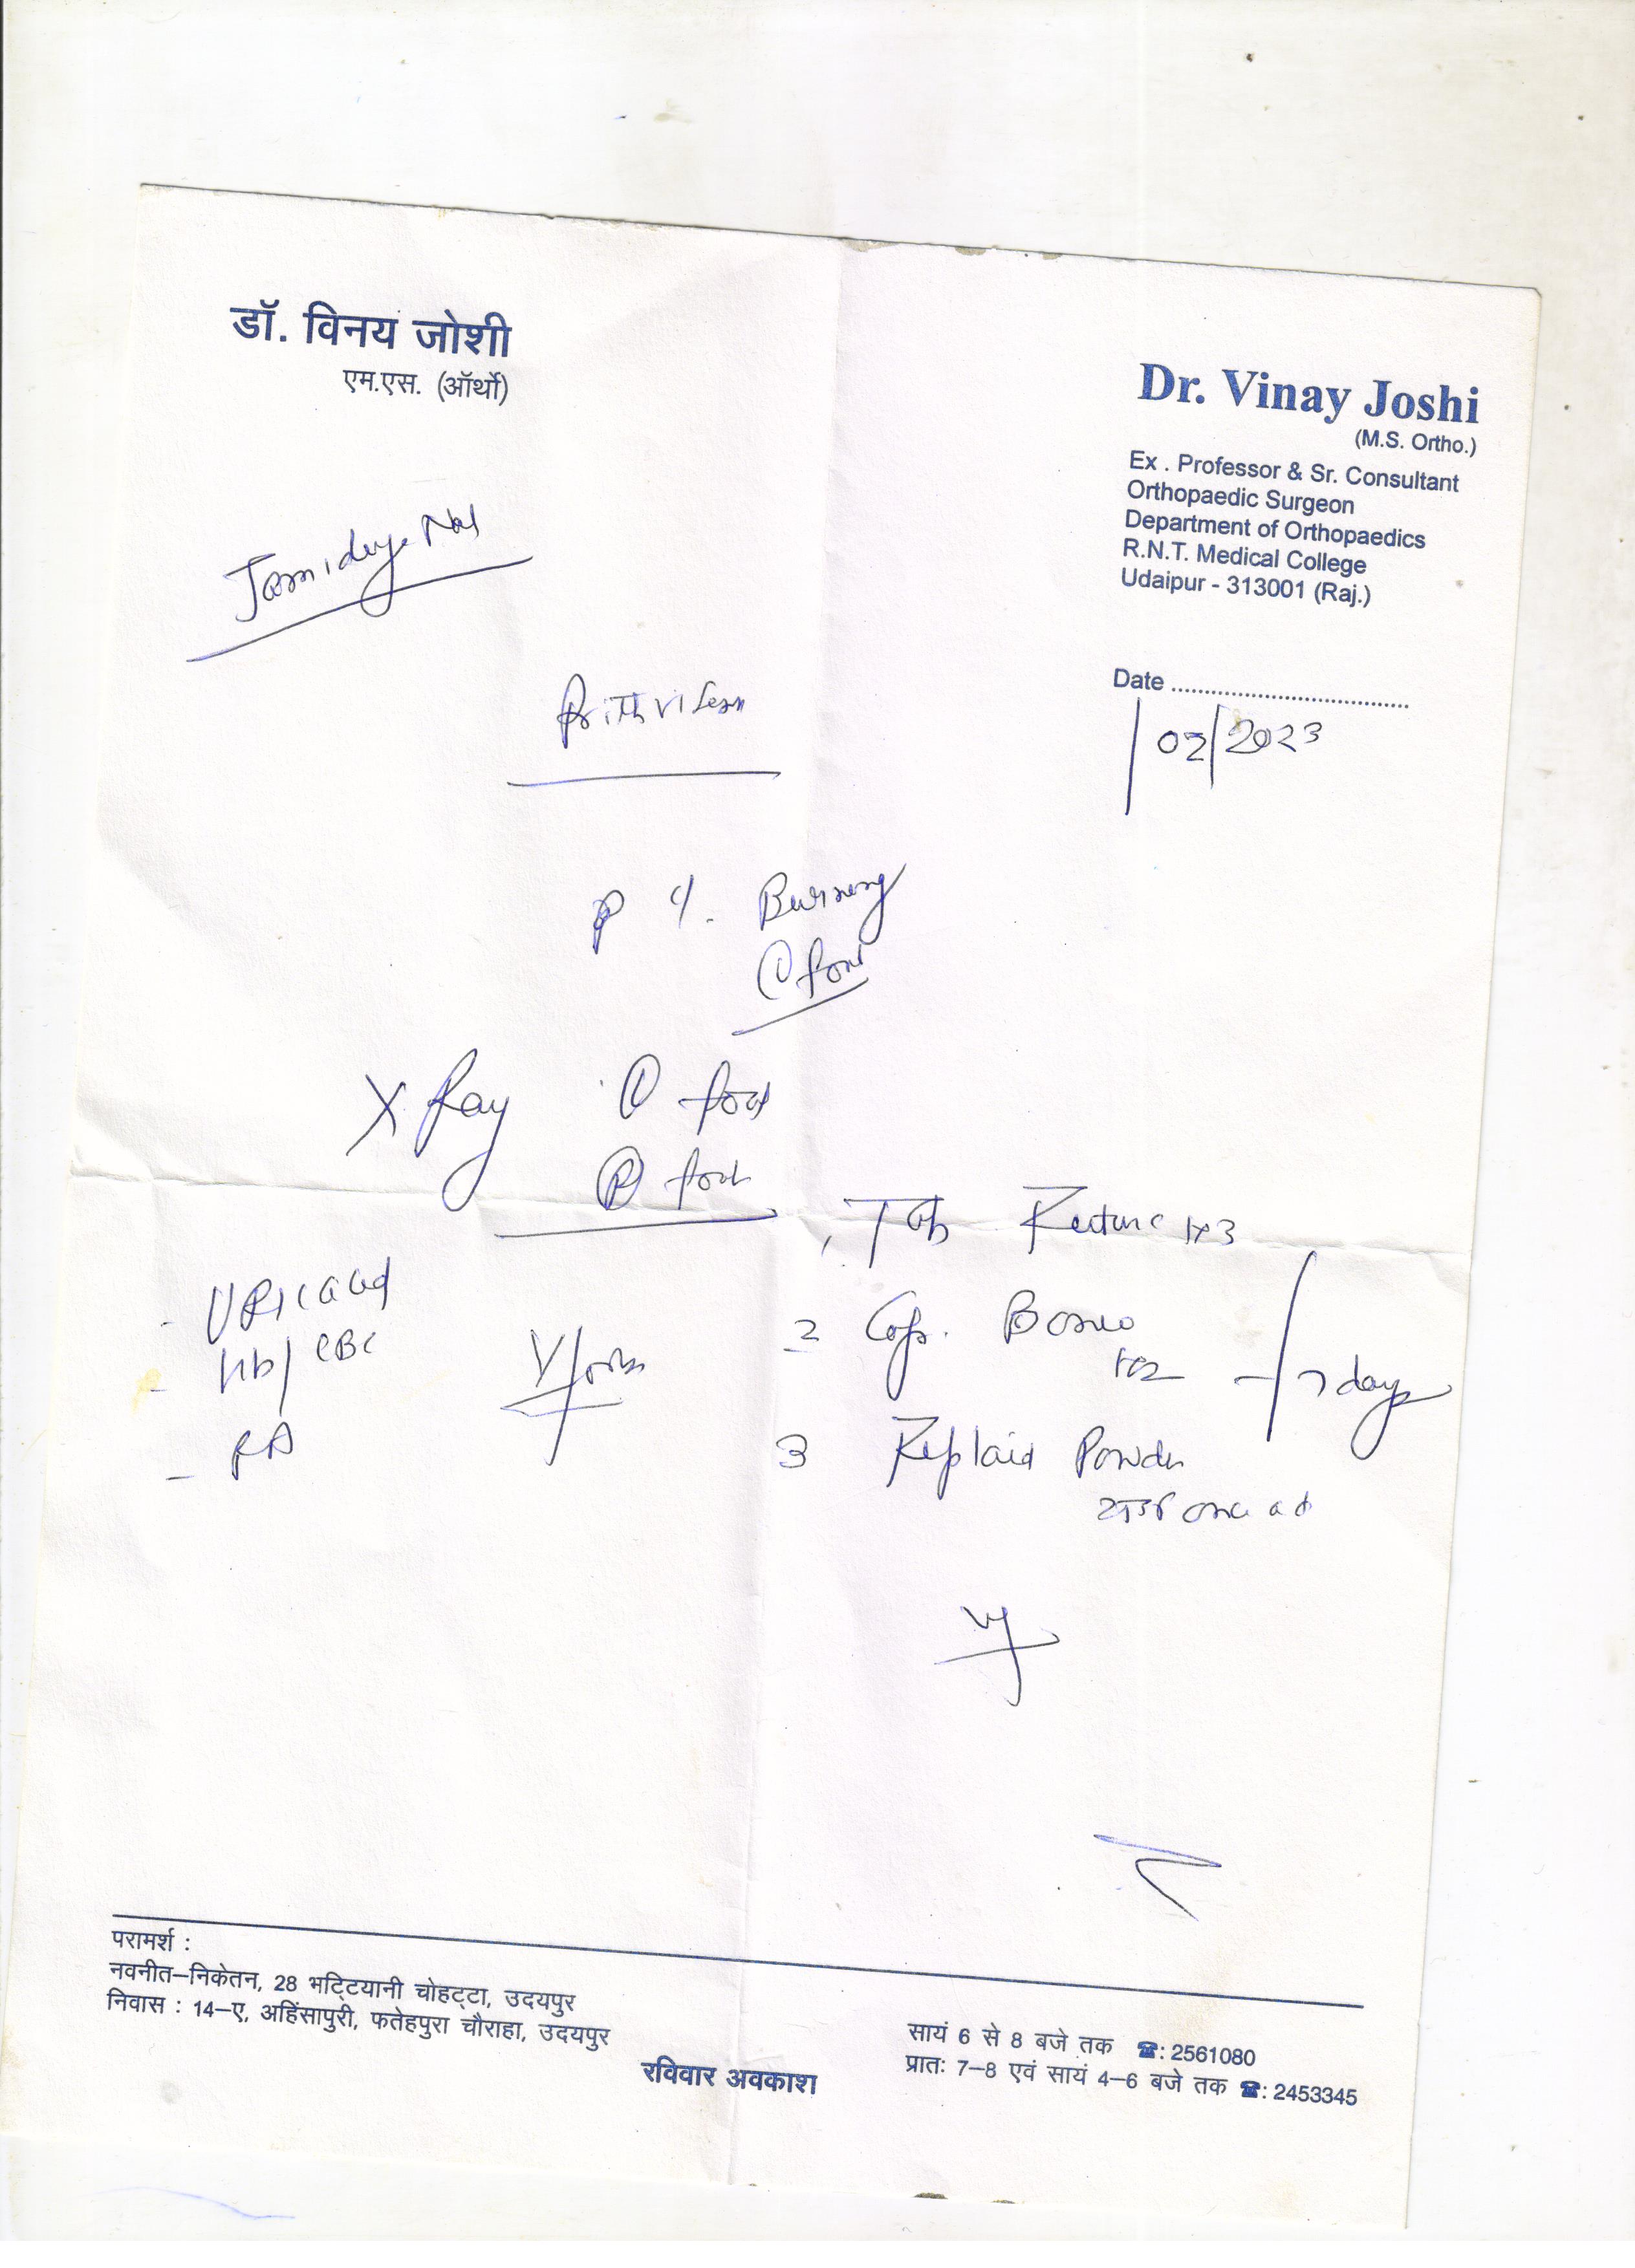 डॉ. विनय जोशी
एम.एस. (ऑर्थो)
Dr. Vinay Joshi
(M.S. Ortho.)
Ex . Professor & Sr. Consultant
Orthopaedic Surgeon
Department of Orthopaedics
R.N.T. Medical College
Udaipur - 313001 (Raj.)
Date ....................................
/02/2023
Burning
Ⓛ foot
X Ray Ⓛ foot
Ⓡ foot
1 Tab 1x3
- Uric acid
- Hb/CBC
2 Cap. 1x2 - 7 days
3 Powder
once a d
VJ
परामर्श :
नवनीत–निकेतन, 28 भट्टियानी चोहट्टा, उदयपुर
निवास : 14–ए, अहिंसापुरी, फतेहपुरा चौराहा, उदयपुर
सायं 6 से 8 बजे तक ☎: 2561080
प्रातः 7–8 एवं सायं 4–6 बजे तक ☎: 2453345
रविवार अवकाश